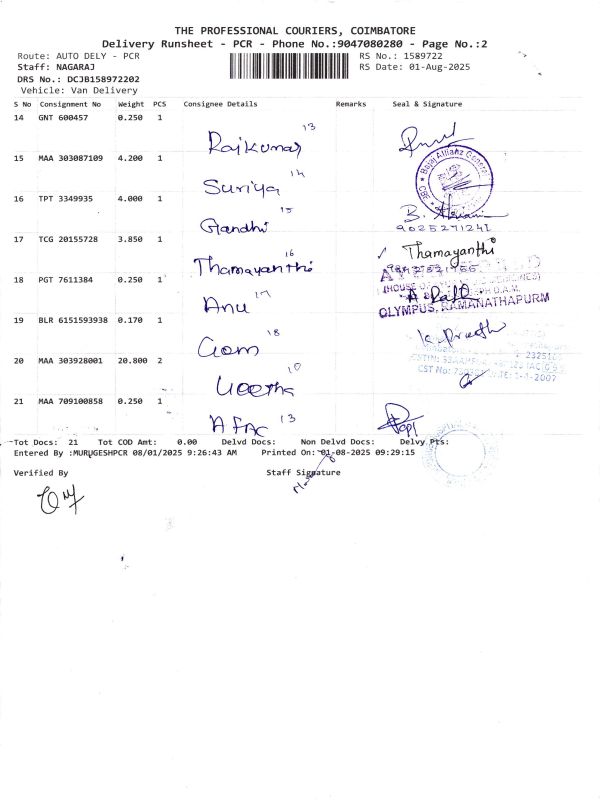 THE PROFESSIONAL COURIERS, COIMBATORE
Delivery Runsheet - PCR - Phone No.:9047080280 - Page No.:2
Route: AUTO DELY - PCR RS No.: 1589722
Staff: NAGARAJ RS Date: 01-Aug-2025
DRS No.: DCJB158972202
Vehicle: Van Delivery
S No Consignment No Weight PCS Consignee Details Remarks Seal & Signature
14 GNT 600457 0.250 1
13
Rajkumar
15 MAA 303087109 4.200 1
Bajaj Allianz General
14
Suriya
16 TPT 3349935 4.000 1
B.
15
Gandhi 9025271241
17 TCG 20155728 3.850 1
Thamayanthi
16
Thamayanthi
18 PGT 7611384 0.250 1
(HOUSE OF
17
Anu
OLYMPUS, RAMANATHAPURM
19 BLR 6151593938 0.170 1
18
Gom
20 MAA 303928001 20.800 2
CST No:
10
Geetha
21 MAA 709100858 0.250 1
13
Tot Docs: 21 Tot COD Amt: 0.00 Delvd Docs: Non Delvd Docs: Delvy Pts:
Entered By :MURUGESHPCR 08/01/2025 9:26:43 AM Printed On: 01-08-2025 09:29:15
Verified By Staff Signature